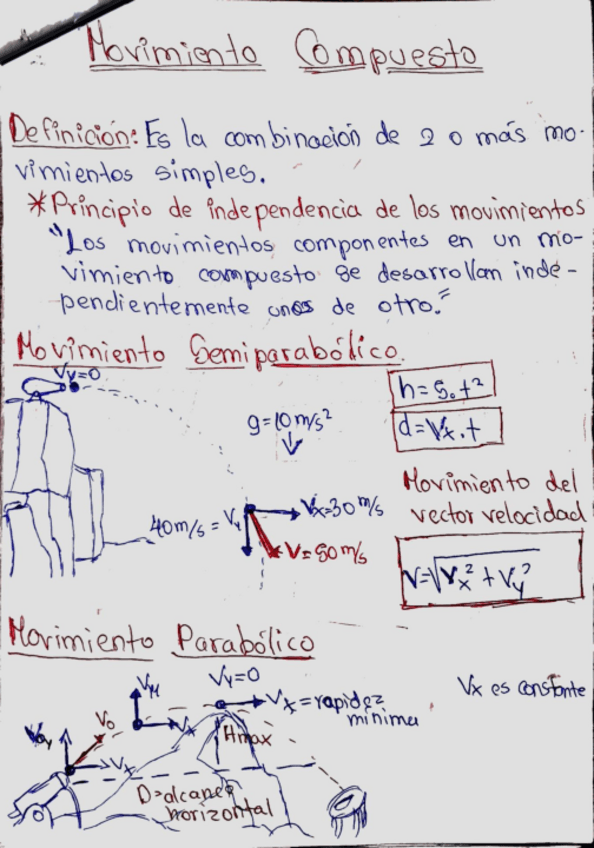 Movimiento Compuesto
Definición: Es la combinación de 2 o más mo-
vimientos simples.
*Principio de independencia de los movimientos
"Los movimientos componentes en un mo-
vimiento compuesto se desarrollan inde-
pendientemente unos de otro."
Movimiento Semiparabólico.
Vy=0
h=5.t²
g=10m/s²
d=Vx.t
Movimiento del
vector velocidad
40m/s = Vy
Vx=30m/s
V=50m/s
V=√Vx²+Vy²
Movimiento Parabólico
Vy
Vy=0
Vx=rapidez
mínima
Vx es constante
Voy
Vo
Vx
Vx
Hmax
D=alcance
horizontal